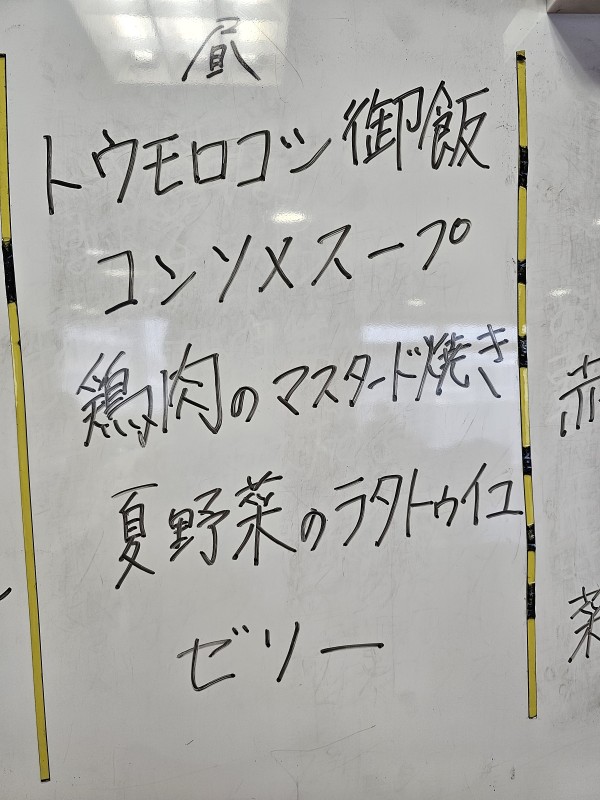 昼
トウモロコシ御飯
コンソメスープ
鶏肉のマスタード焼き
夏野菜のラタトゥイユ
ゼリー